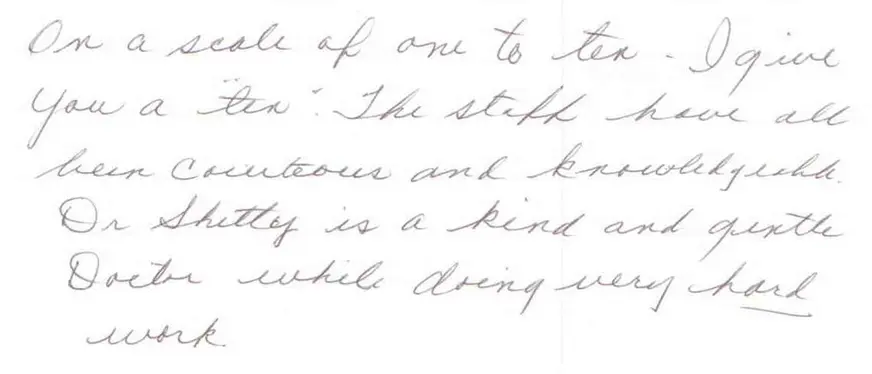 On a scale of one to ten - I give
You a "ten". The staff have all
been courteous and knowledgeable.
Dr Shetty is a kind and gentle
Doctor while doing very hard
work